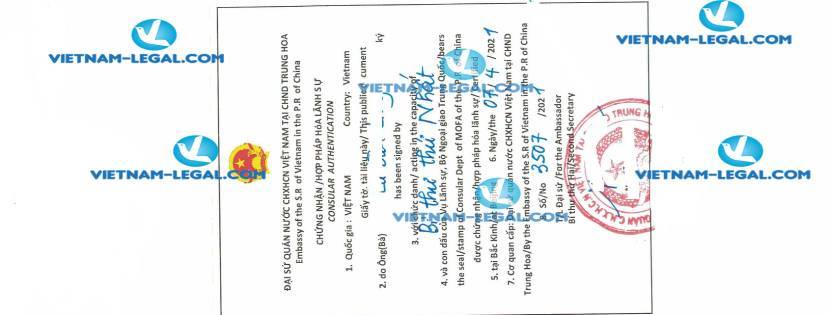 ĐẠI SỨ QUÁN NƯỚC CHXHCN VIỆT NAM TẠI CHND TRUNG HOA
Embassy of the S.R of Vietnam in the P.R of China
CHỨNG NHẬN /HỢP PHÁP HÓA LÃNH SỰ
CONSULAR AUTHENTICATION
1. Quốc gia : VIỆT NAM Country: Vietnam
Giấy tờ, tài liệu này/ This public cument
2. do Ông(Bà) ký
has been signed by
3. với chức danh/ acting in the capacity of
Bí thư thứ Nhất
4. và con dấu của Vụ Lãnh sự, Bộ Ngoại giao Trung Quốc/bears
the seal/stamp of Consular Dept of MOFA of the P.R of China
được chứng nhận/hợp pháp hóa lãnh sự/
5. tại Bắc Kinh/at 6. Ngày/the 07/4/2021
7. Cơ quan cấp: Đại sứ quán nước CHXHCN Việt Nam tại CHND
Trung Hoa/By the Embassy of the S.R of Vietnam in the P.R of China
8. Số/No 3507 /2021
TL Đại sứ /For the Ambassador
Bí thư thứ Hai/Second Secretary
TRUNG
VIETNAM-LEGAL.COM
VIETNAM-LEGAL.COM
VIETNAM-LEGAL.COM
VIETNAM-LEGAL.COM
VIETNAM-LEGAL.COM
VIETNAM-LEGAL.COM